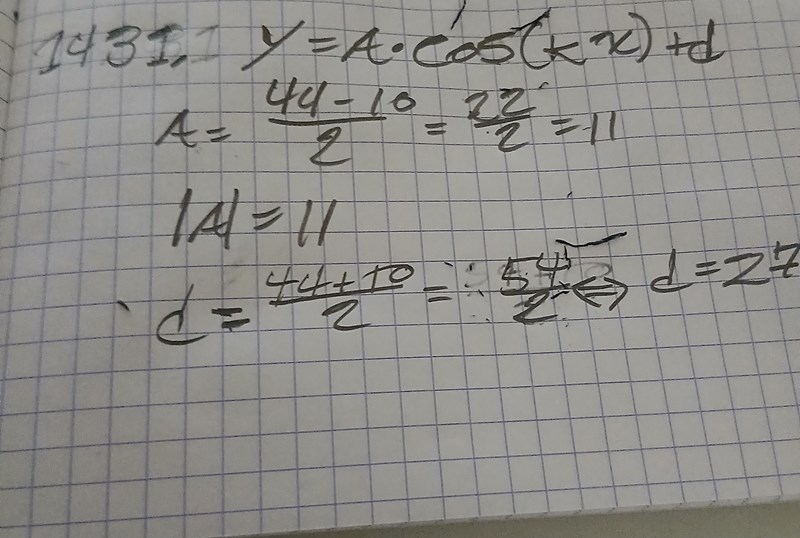 1431. y = A·cos(kx) + d
A = (44 - 10)/2 = 22/2 = 11
|A| = 11
d = (44 + 10)/2 = 54/2 ⇔ d = 27